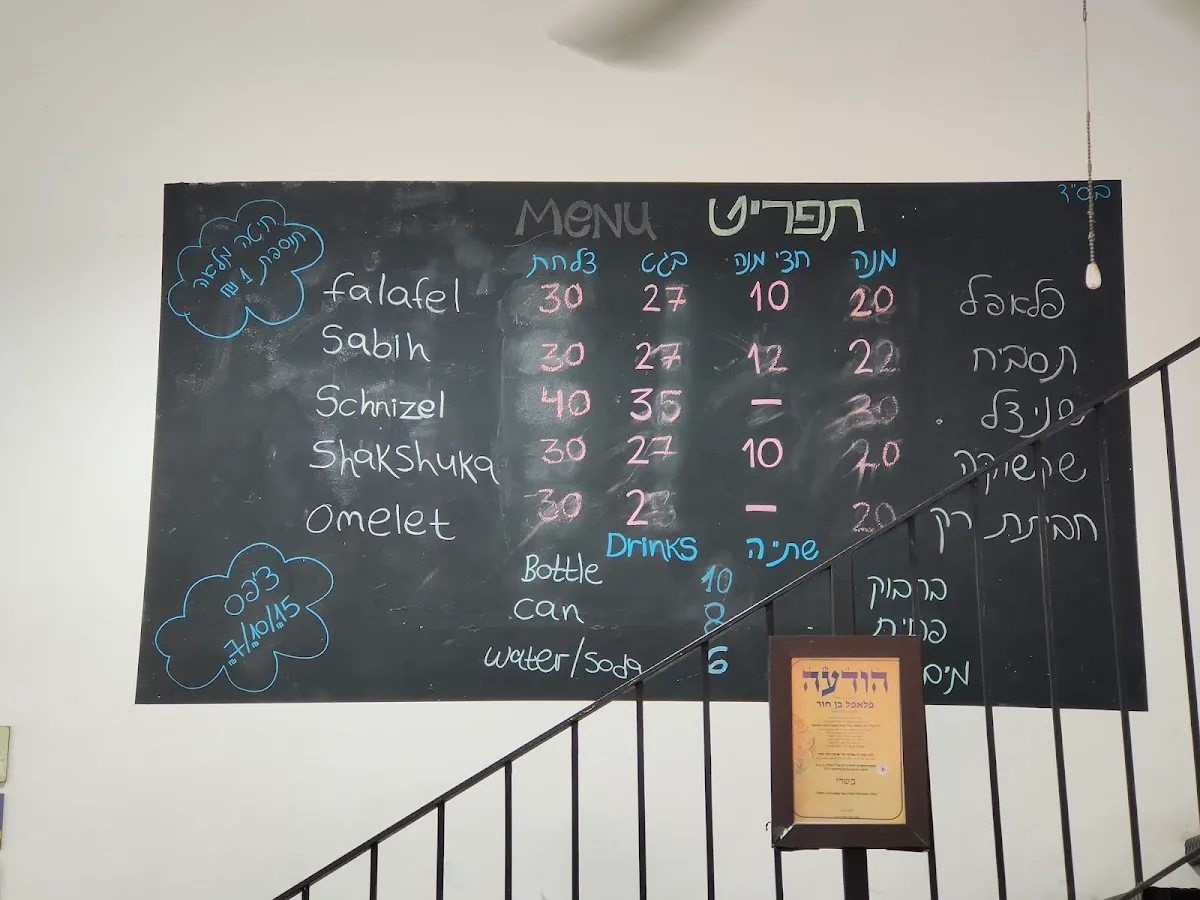 בס"ד
MENU תפריט
חיטה מלאה
תוספת 1 ₪
צלחת בגט חצי מנה מנה
falafel 30 27 10 20 פלאפל
Sabih 30 27 12 22 תסביח
Schnizel 40 35 – 30 שניצל
Shakshuka 30 27 10 20 שקשוקה
omelet 30 23 – 20 חביתת ירק
Drinks שת״ה
Bottle 10 בקבוק
can 8 פחית
water/Soda 6 מים
צ׳יפס
7/10/15
הודעה
פלאפל בן חור
בשרי